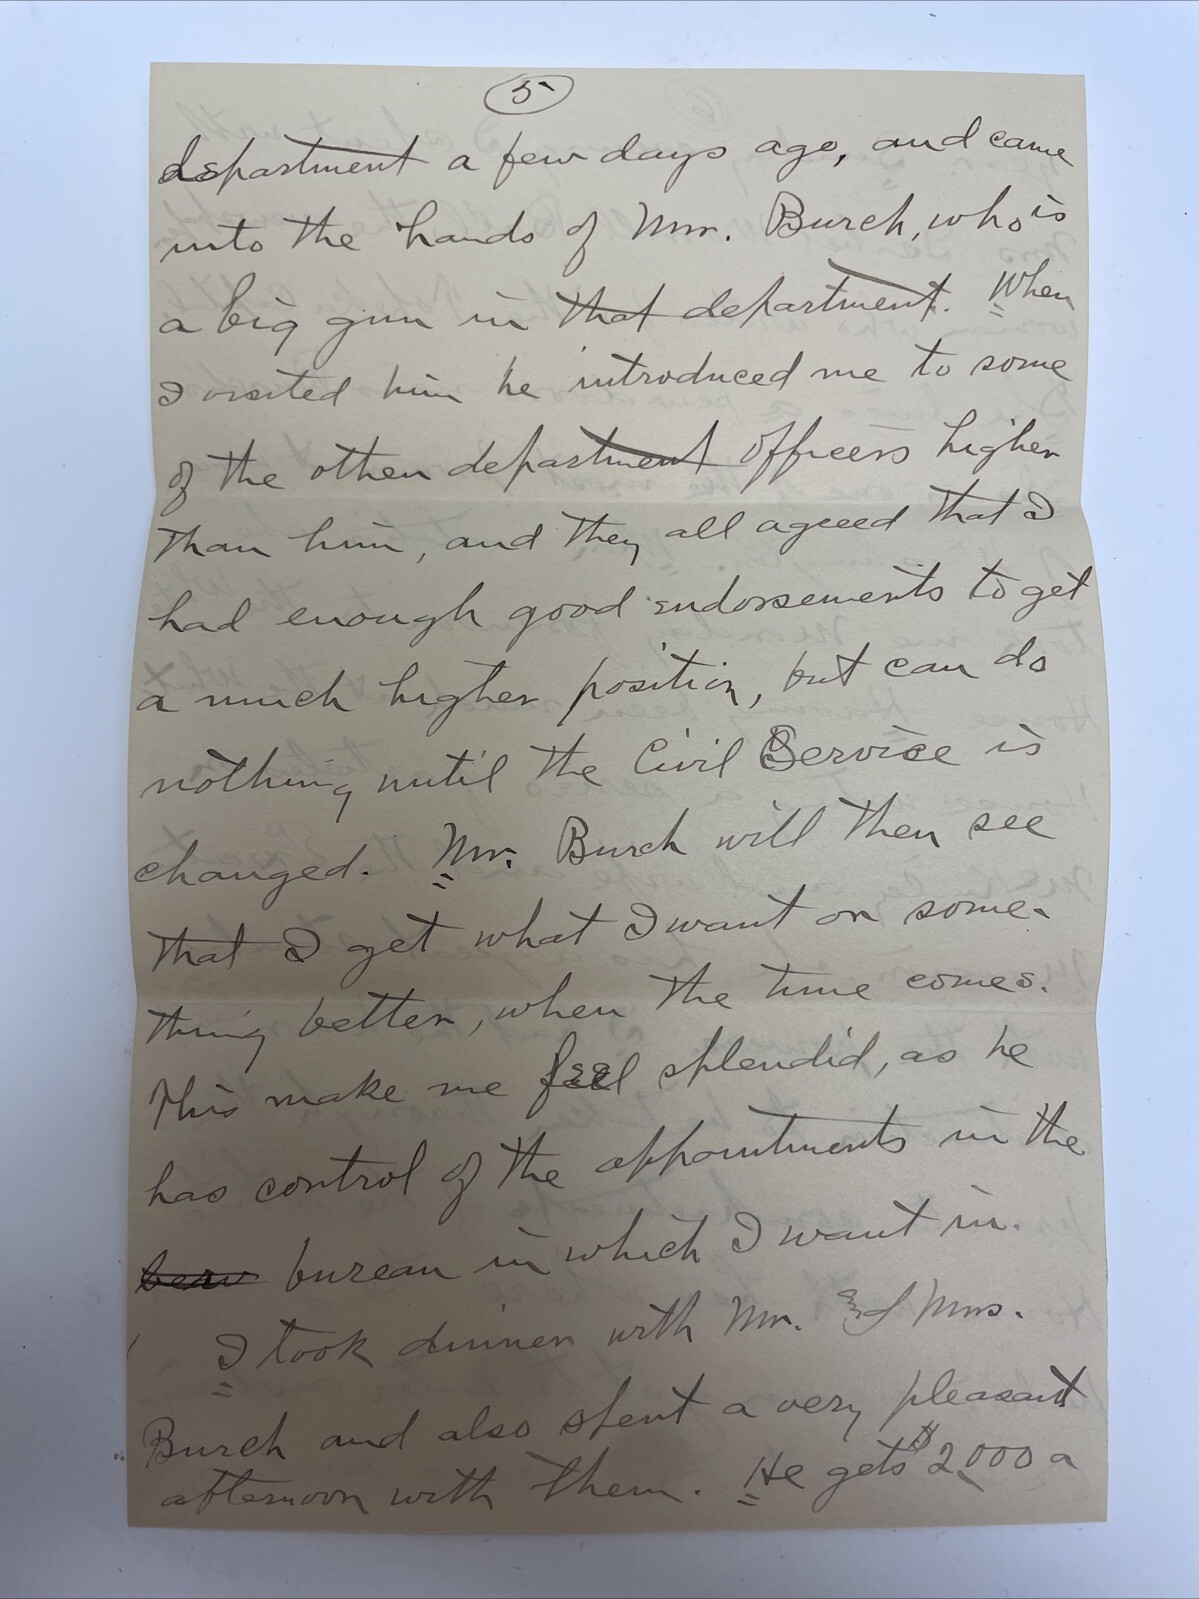 5
department a few days ago, and came
into the hands of Mr. Burch, who is
a big gun in that department. When
I visited him he introduced me to some
of the other department officers higher
than him, and they all agreed that I
had enough good endorsements to get
a much higher position, but can do
nothing until the Civil Service is
changed. Mr. Burch will then see
that I get what I want or some-
thing better, when the time comes.
This make me feel splendid, as he
has control of the appointments in the
bureau in which I want in.
I took dinner with Mr. and Mrs.
Burch and also spent a very pleasant
afternoon with them. He gets $2,000 a